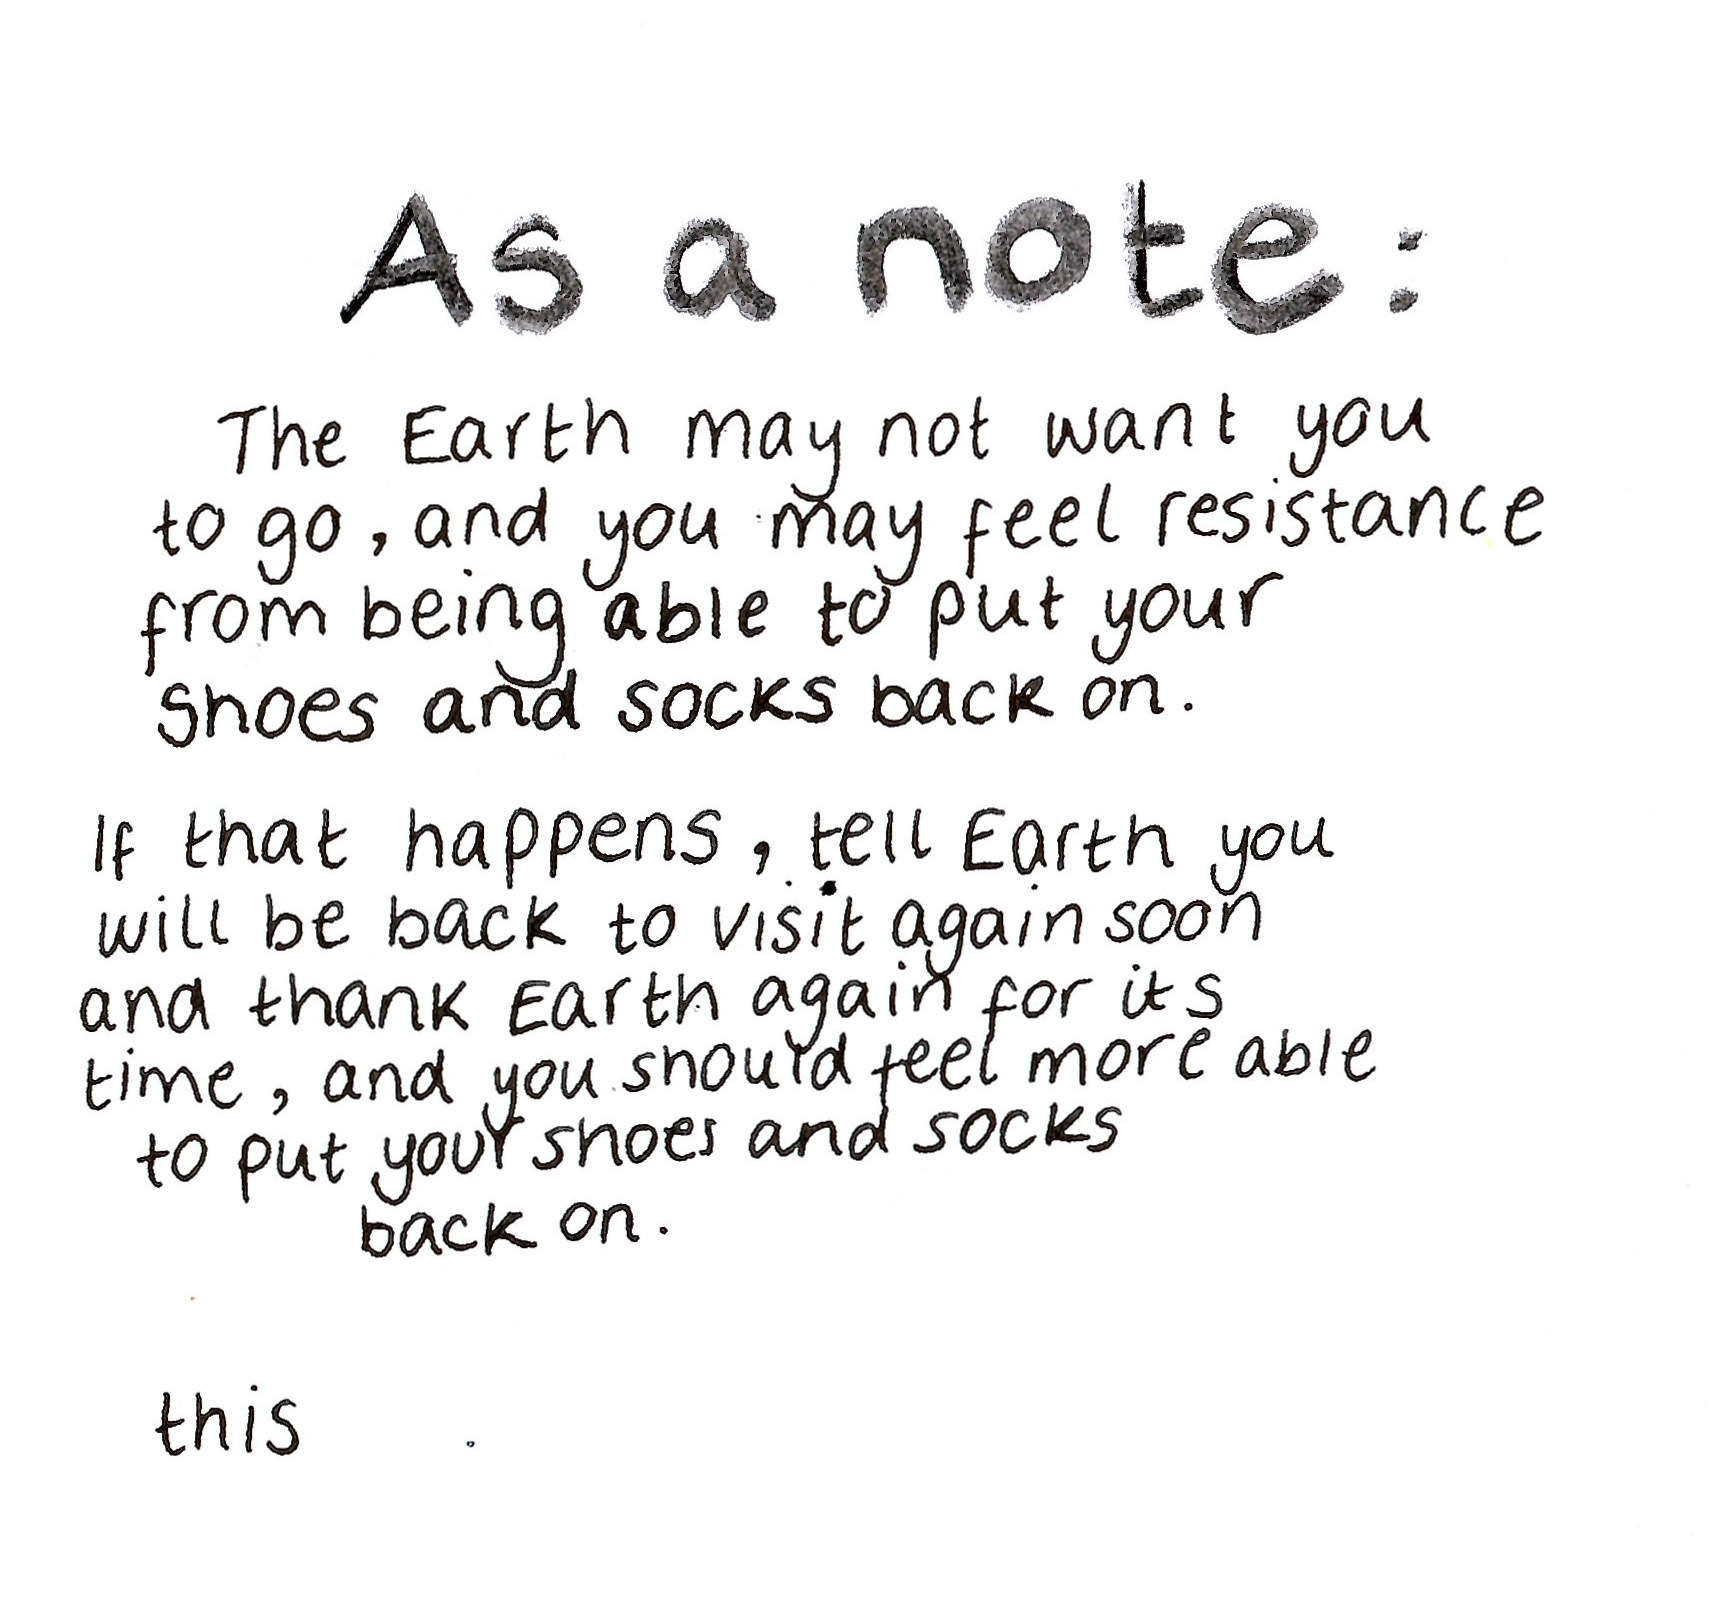 As a note:
The Earth may not want you
to go, and you may feel resistance
from being able to put your
shoes and socks back on.
If that happens, tell Earth you
will be back to visit again soon
and thank Earth again for its
time, and you should feel more able
to put your shoes and socks
back on.
this